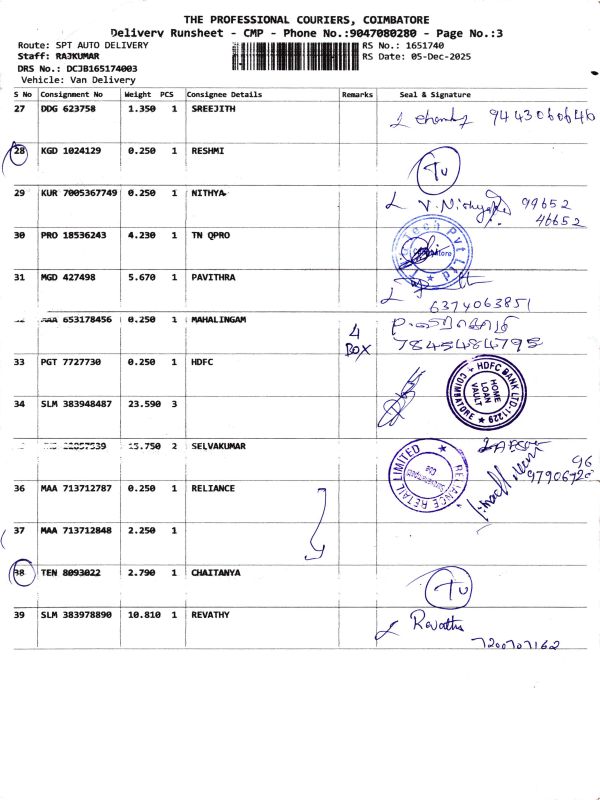 THE PROFESSIONAL COURIERS, COIMBATORE
Delivery Runsheet - CMP - Phone No.:9047080280 - Page No.:3
Route: SPT AUTO DELIVERY
RS No.: 1651740
Staff: RAJKUMAR
RS Date: 05-Dec-2025
DRS No.: DCJB165174003
Vehicle: Van Delivery
S No Consignment No Weight PCS Consignee Details Remarks Seal & Signature
27 DDG 623758 1.350 1 SREEJITH
9443060646
28 KGD 1024129 0.250 1 RESHMI
29 KUR 7005367749 0.250 1 NITHYA
99652
46652
30 PRO 18536243 4.230 1 TN QPRO
Tech Pvt Ltd
31 MGD 427498 5.670 1 PAVITHRA
6374063851
653178456 0.250 1 MAHALINGAM
4 BOX
7845484795
33 PGT 7727730 0.250 1 HDFC
HDFC BANK LTD-11229
COIMBATORE
HOME LOAN VAULT
34 SLM 383948487 23.590 3
2 SELVAKUMAR
RELIANCE RETAIL LIMITED
96
36 MAA 713712787 0.250 1 RELIANCE
37 MAA 713712848 2.250 1
38 TEN 8093022 2.790 1 CHAITANYA
39 SLM 383978890 10.810 1 REVATHY
Revathi
7200707162